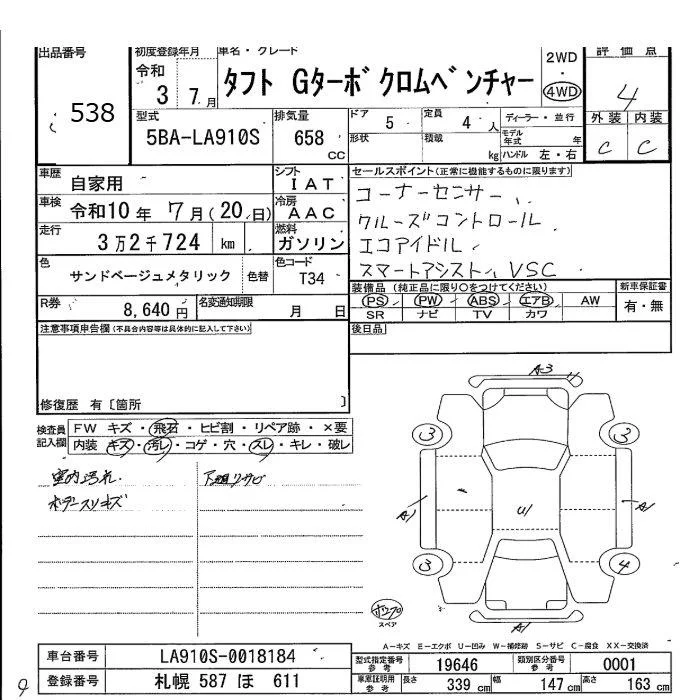 出品番号
538
初度登録年月
令和
3 7月
車名・グレード
タフト Gターボ クロムベンチャー
2WD
・
4WD
評価点
4
外装 内装
C C
型式
5BA-LA910S
排気量
658
CC
ドア 5
定員 4 人
ディーラー・並行
形状
積載
kg
モデル年式 年
ハンドル 左・右
車歴
自家用
シフト
IAT
車検
令和10年 7月(20日)
冷房
AAC
走行
3万2千724 km
燃料
ガソリン
色
サンドベージュメタリック
色替
色コード
T34
R券
8,640円
名変通知期限
月 日
セールスポイント(正常に機能するものに限ります)
コーナーセンサー、
クルーズコントロール
エコアイドル
スマートアシスト、VSC
装備品(純正品に限り○をつけてください)
PS PW ABS エアB AW
SR ナビ TV カワ
新車保証書
有・無
後日品
注意事項申告欄(不具合内容等は具体的に記入して下さい)
修復歴 有〔箇所 〕
検査員
記入欄
FW キズ・飛石・ヒビ割・リペア跡・×要
内装 キズ・汚レ・コゲ・穴・スレ・キレ・破レ
室内汚れ
ボデースリキズ
下廻りサビ
A3
3
3
A1
U1
A1
3
4
A1
スペア
A-キズ E-エクボ U-凹み W-補修跡 S-サビ C-腐食 XX-交換済
車台番号
LA910S-0018184
型式指定番号
参考
19646
類別区分番号
参考
0001
登録番号
札幌 587 ほ 611
車庫証明用
参考
長さ 339 cm
幅 147 cm
高さ 163 cm